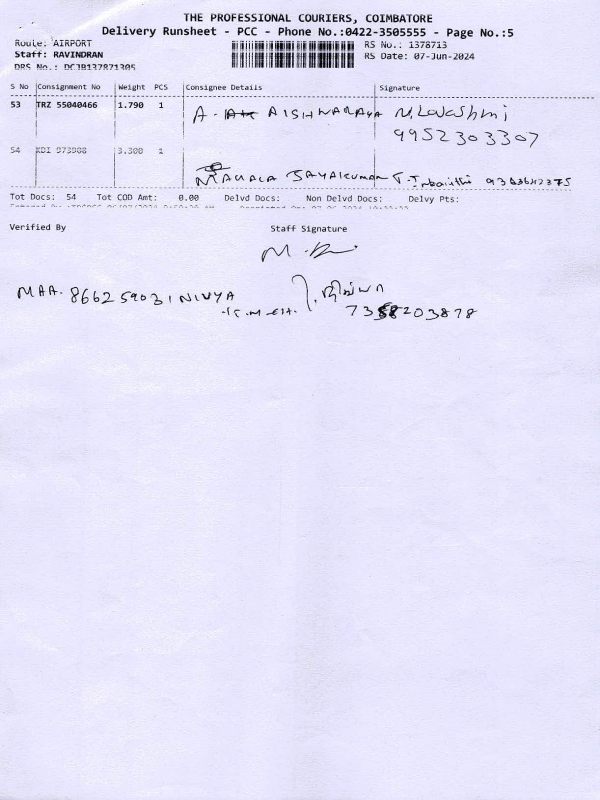 THE PROFESSIONAL COURIERS, COIMBATORE
Delivery Runsheet - PCC - Phone No.:0422-3505555 - Page No.:5
Route: AIRPORT
RS No.: 1378713
Staff: RAVINDRAN
RS Date: 07-Jun-2024
DRS No.: DCJB137871305
S No Consignment No Weight PCS Consignee Details Signature
53 TRZ 55040466 1.790 1 A- AISHWARAYA N. Lovashmi
9952303307
54 KDI 973908 3.300 1
MAHALA JAYAKUMAR T. Inbavathi
Tot Docs: 54 Tot COD Amt: 0.00 Delvd Docs: Non Delvd Docs: Delvy Pts:
Verified By Staff Signature
MAA. 866259031 NIVYA
7358203878